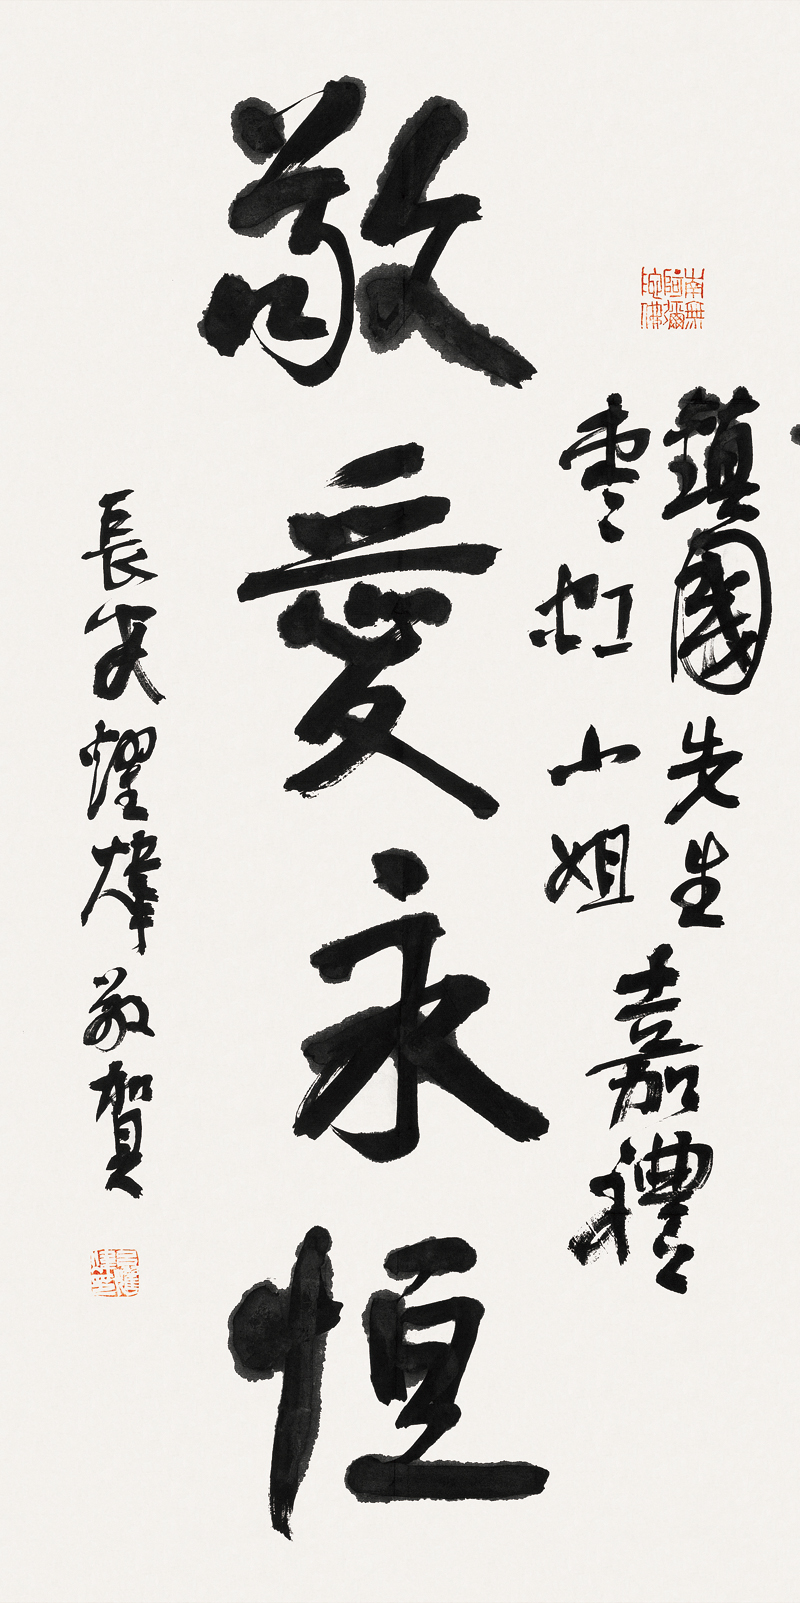 南無阿彌陀佛
鎮國先生
枣虹小姐
嘉禮
敬愛永恒
長安燿敬賀